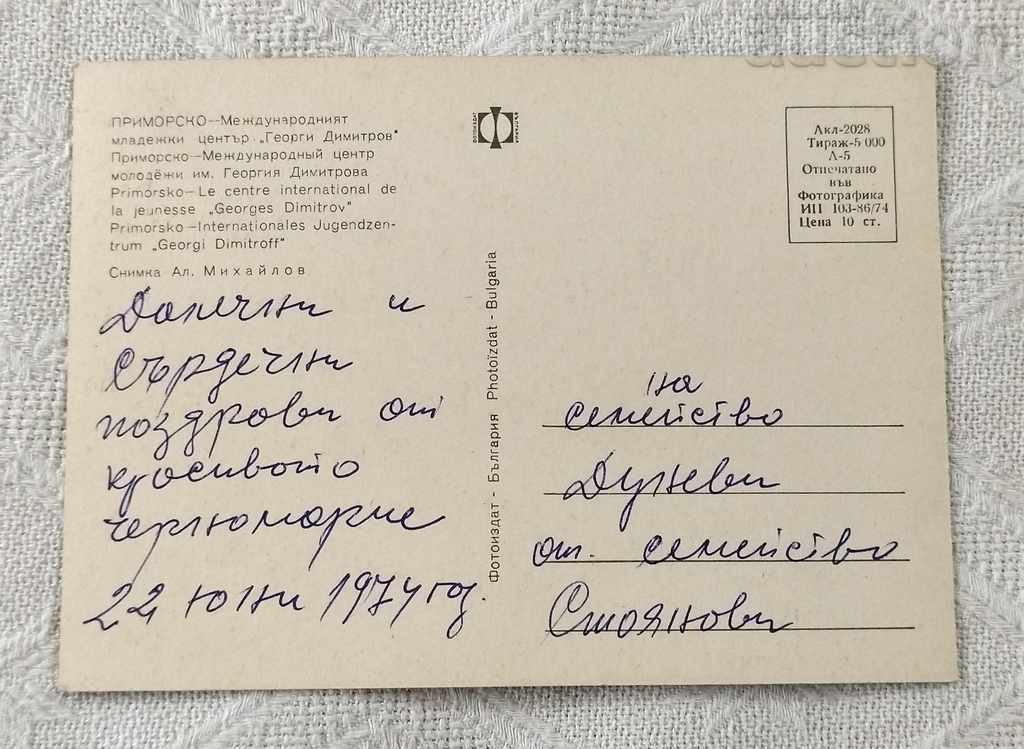 ПРИМОРСКО—Международният
младежки център „Георги Димитров"
Приморско—Международный центр
молодёжи им. Георгия Димитрова
Primorsko—Le centre international de
la jeunesse „Georges Dimitrov"
Primorsko—Internationales Jugendzen-
trum „Georgi Dimitroff"
Снимка Ал. Михайлов
Далечни и
Сърдечни
поздрови от
красивото
черноморие
22 юни 1974 год.
Фотоиздат - България Photoïzdat - Bulgaria
Акл-2028
Тираж-5 000
Л-5
Отпечатано
във
Фотографика
ИП 103-86/74
Цена 10 ст.
на
семейство
Дуневи
от. семейство
Стоянови